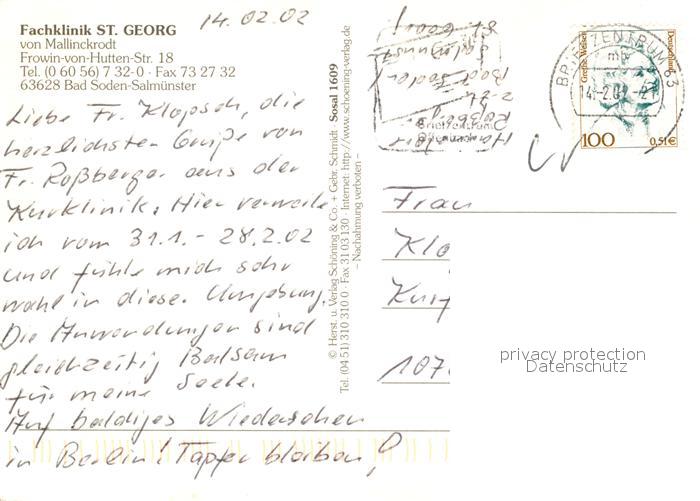 14.02.02
Fachklinik ST. GEORG
von Mallinckrodt
Frowin-von-Hutten-Str. 18
Tel. (0 60 56) 7 32-0 · Fax 73 27 32
63628 Bad Soden-Salmünster
Liebe Fr. Klopsch, die
herzlichsten Grüße von
Fr. Roßberger aus der
Kurklinik. Hier verweile
ich vom 31.1. - 28.2.02
und fühle mich sehr
wohl in dieser Umgebung.
Die Anwendungen sind
gleichzeitig Balsam
für meine Seele.
Auf baldiges Wiedersehen
in Berlin! Tapfer bleiben!
© Herst. u. Verlag Schöning & Co. + Gebr. Schmidt · Sosal 1609
Tel. (04 51) 310 310 0 · Fax 31 03 130 · Internet: http://www.schoening-verlag.de
– Nachahmung verboten –
Bad Soden
Briefzentrum
Offenbach
BRIEFZENTRUM 63
mb
14.-2.02.-21
Grethe Weiser
Deutschland
100
0,51€
Frau
Klo
Kur
107
privacy protection
Datenschutz